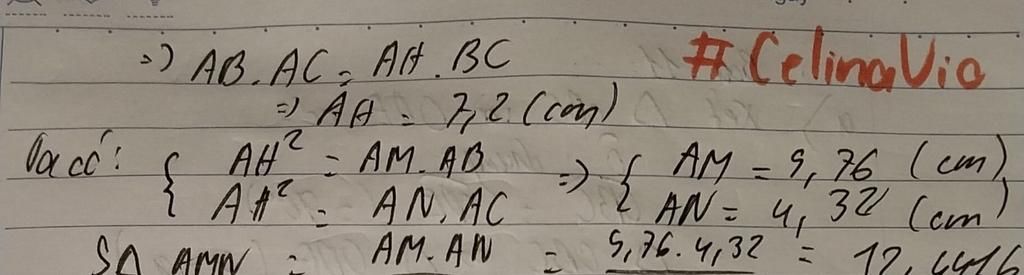 => AB.AC = AH.BC
#CelinaVio
=> AH = 7,2 (cm)
Ta có: { AH² = AM.AB => { AM = 5,76 (cm)
AH² = AN.AC AN = 4,32 (cm)
SΔ AMN = AM.AN = 5,76.4,32 = 12,4416